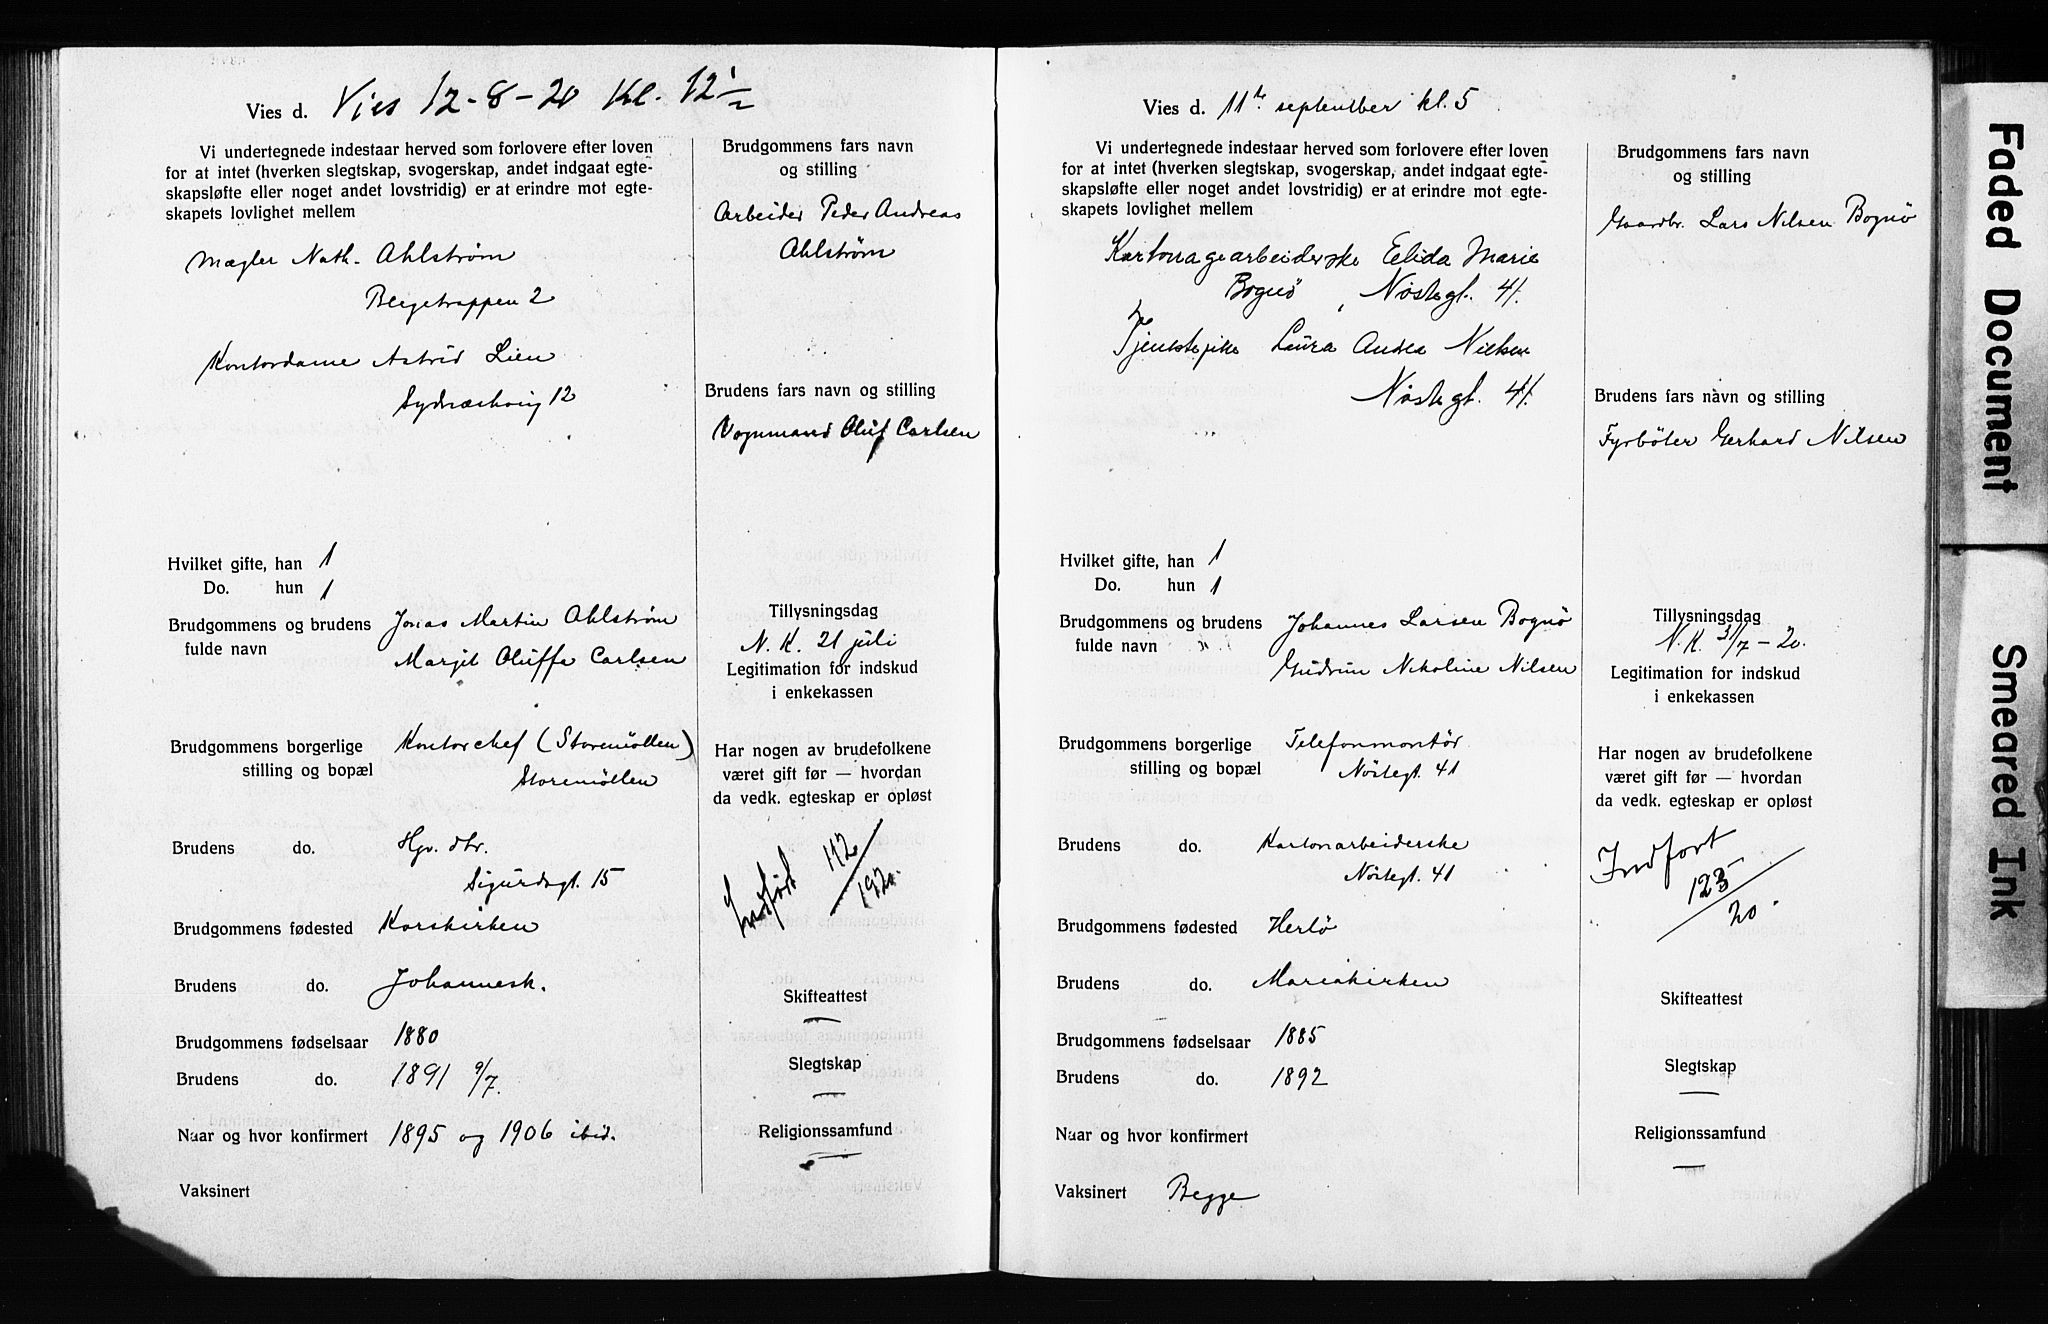 Vies d. Vies 12-8-20 Kl. 12 1/2
Vi undertegnede indestaar herved som forlovere efter loven
for at intet (hverken slegtskap, svogerskap, andet indgaat egte-
skapsløfte eller noget andet lovstridig) er at erindre mot egte-
skapets lovlighet mellem
Mægler Nath. Ahlstrøm
2
Kontordame Astrid Lien
12
Brudgommens fars navn
og stilling
Arbeider Peder Andreas
Ahlstrøm
Brudens fars navn og stilling
Vognmand Oluf Carlsen
Hvilket gifte, han 1
Do. hun 1
Brudgommens og brudens
fulde navn
Jonas Martin Ahlstrøm
Margit Oluffa Carlsen
Tillysningsdag
N. K. 21 juli
Legitimation for indskud
i enkekassen
Brudgommens borgerlige
stilling og bopæl
Kontorchef (Storemöllen)
Storemöllen
Har nogen av brudefolkene
været gift før — hvordan
da vedk. egteskap er opløst
Indført 112/1920.
Brudens do. Hgv. dtr.
Sigurdsgt. 15
Brudgommens fødested Korskirken
Brudens do. Johannesk.
Skifteattest
—
Brudgommens fødselsaar 1880
Brudens do. 1891 9/7.
Slegtskap
—
Naar og hvor konfirmert 1895 og 1906 ibid.
Religionssamfund
—
Vaksinert
Vies d. 11te september kl. 5
Vi undertegnede indestaar herved som forlovere efter loven
for at intet (hverken slegtskap, svogerskap, andet indgaat egte-
skapsløfte eller noget andet lovstridig) er at erindre mot egte-
skapets lovlighet mellem
Kartonagearbeiderske Elida Marie
Bognö, Nöstegt. 41.
Tjenestepike Laura Andea Nielsen
Nöstegt. 41.
Brudgommens fars navn
og stilling
Gaardbr. Lars Nilsen Bognö
Brudens fars navn og stilling
Fyrböter Gerhard Nilsen
Hvilket gifte, han 1
Do. hun 1
Brudgommens og brudens
fulde navn
Johannes Larsen Bognö
Gudrun Nikoline Nilsen
Tillysningsdag
N. K. 31/7 - 20.
Legitimation for indskud
i enkekassen
Brudgommens borgerlige
stilling og bopæl
Telefonmontör
Nöstegt. 41
Har nogen av brudefolkene
været gift før — hvordan
da vedk. egteskap er opløst
Indført
123/20.
Brudens do. Kartonarbeiderske
Nöstegt. 41
Brudgommens fødested Herlö
Brudens do. Mariakirken
Skifteattest
Brudgommens fødselsaar 1885
Brudens do. 1892
Slegtskap
—
Naar og hvor konfirmert
Religionssamfund
—
Vaksinert Begge
Faded Document
Smeared Ink